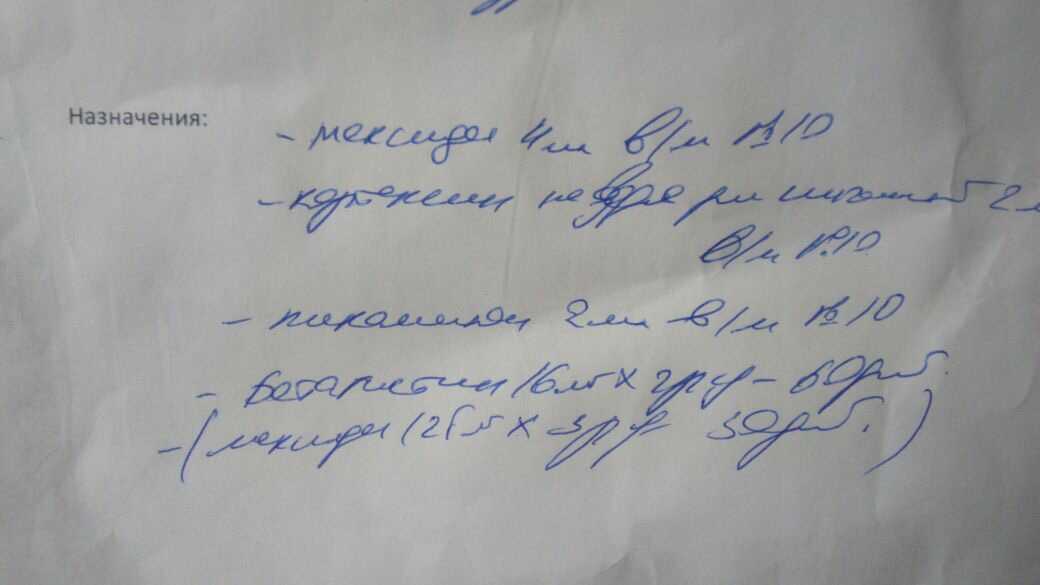 Назначения:
- мексидол 4 мл в/м № 10
- кортексин на физ. р-ре 2
в/м № 10
- пикамилон 2 мл в/м № 10
- Бетагистин 16 мг х 2 р/д - 60 дн.
- (мексидол 125 мг х 3 р/д 30 дн.)